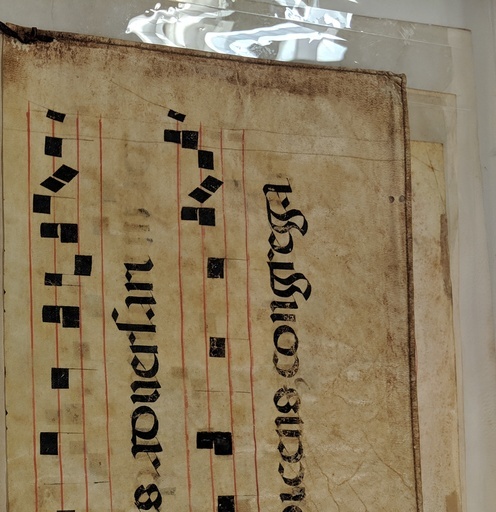 s adversari
dicens, congrega